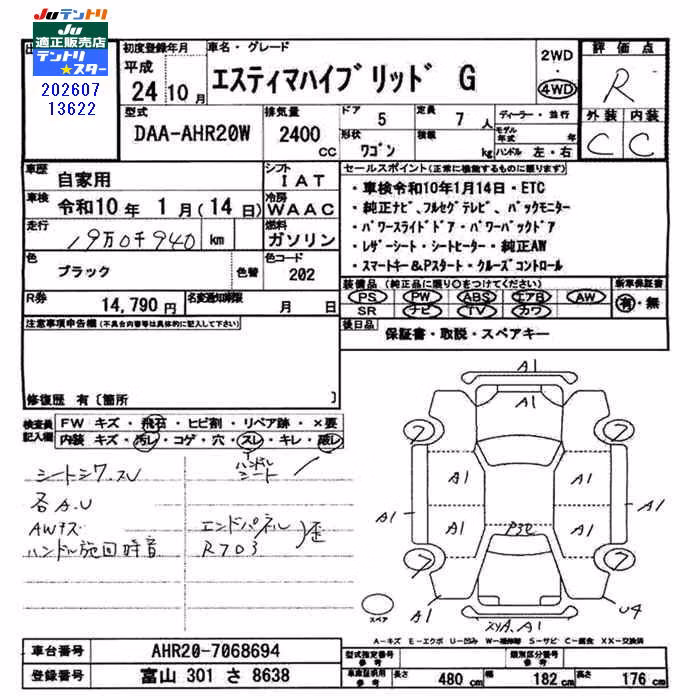 JUテントリ
JU
適正販売店
テントリ
★スター
202607
13622
初度登録年月
平成
24 10 月
車名・グレード
エスティマハイブリッド G
2WD
4WD
評価点
R
型式
DAA-AHR20W
排気量
2400
CC
ドア
5
定員
7 人
形状
ワゴン
積載
kg
ディーラー・並行
モデル
年式 年
ハンドル 左・右
外装 内装
C C
車歴
自家用
シフト
IAT
車検
令和10 年 1 月(14 日)
冷房
WAAC
走行
19万0千940 km
燃料
ガソリン
色
ブラック
色替
色コード
202
R券
14,790 円
名変通知期限
月 日
セールスポイント(正常に機能するものに限ります)
・車検令和10年1月14日・ETC
・純正ナビ、フルセグテレビ、バックモニター
・パワースライドドア・パワーバックドア
・レザーシート・シートヒーター・純正AW
・スマートキー&Pスタート・クルーズコントロール
装備品(純正品に限り○をつけてください)
PS PW ABS エアB AW
SR ナビ TV カワ
新車保証書
有・無
後日品
保証書・取説・スペアキー
注意事項申告欄(不具合内容等は具体的に記入して下さい)
修復歴 有〔箇所 〕
検査員
記入欄
FW キズ・飛石・ヒビ割・リペア跡・×要
内装 キズ・汚レ・コゲ・穴・スレ・キレ・破レ
ハンドル
シート
シートシワ.スレ
各A.U
AWキズ
ハンドル旋回時音
エンドパネル
R703
歪
A1
A1
A1
A1
A1
A1
A1
A1
A1
A1
U4
XYA.A1
スペア
A-キズ E-エクボ U-凹み W-補修跡 S-サビ C-腐食 XX-交換済
車台番号
AHR20-7068694
登録番号
富山 301 さ 8638
型式指定番号
参考
類別区分番号
参考
車検証記載
参考
長さ 480 cm 幅 182 cm 高さ 176 cm